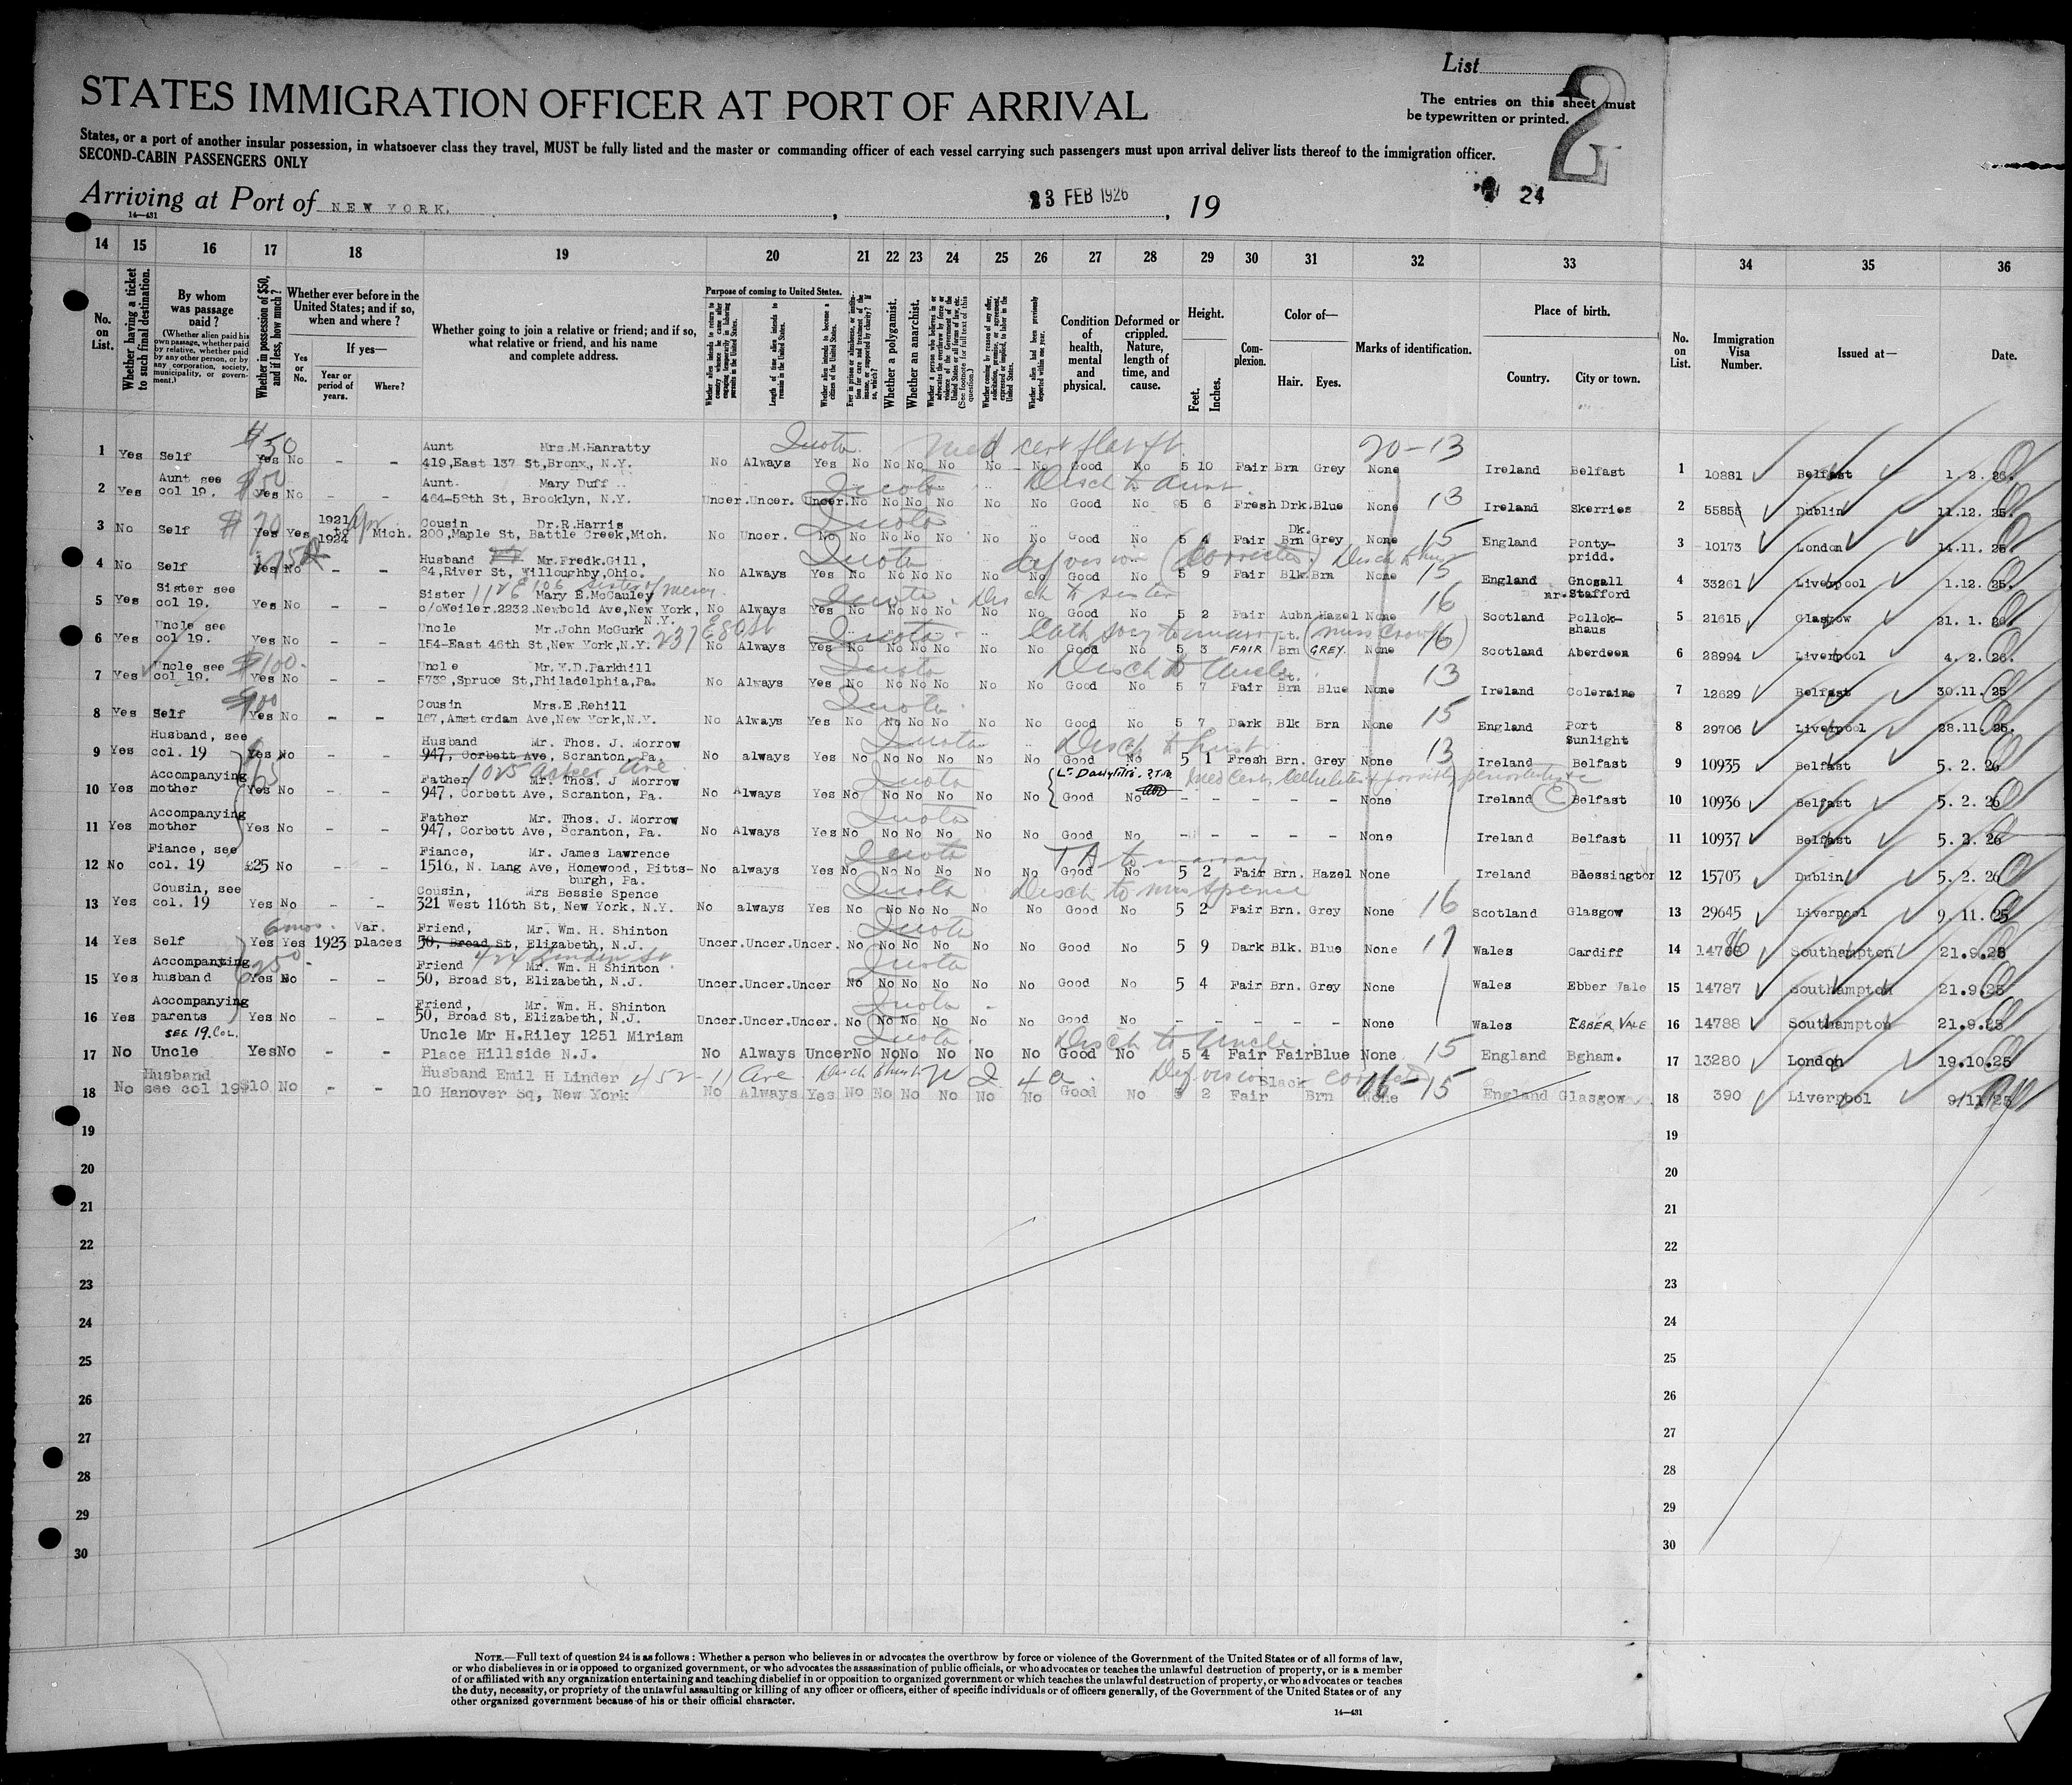 List
2
STATES IMMIGRATION OFFICER AT PORT OF ARRIVAL
The entries on this sheet must
be typewritten or printed.
States, or a port of another insular possession, in whatsoever class they travel, MUST be fully listed and the master or commanding officer of each vessel carrying such passengers must upon arrival deliver lists thereof to the immigration officer.
SECOND-CABIN PASSENGERS ONLY
24
Arriving at Port of NEW YORK, 23 FEB 1926, 19
14—431
14 15 16 17 18 19 20 21 22 23 24 25 26 27 28 29 30 31 32 33 34 35 36
No. on List.
Whether having a ticket to such final destination.
By whom was passage paid?
(Whether alien paid his own passage, whether paid by relative, whether paid by any other person, or by any corporation, society, municipality, or government.)
Whether in possession of $50, and if less, how much?
Whether ever before in the United States; and if so, when and where?
Yes or No.
If yes—
Year or period of years.
Where?
Whether going to join a relative or friend; and if so, what relative or friend, and his name and complete address.
Purpose of coming to United States.
Length of time alien intends to remain in the United States.
Whether alien intends to become a citizen of the United States.
Whether a polygamist.
Whether an anarchist.
Condition of health, mental and physical.
Deformed or crippled. Nature, length of time, and cause.
Height.
Feet. Inches.
Complexion.
Color of—
Hair. Eyes.
Marks of identification.
Place of birth.
Country. City or town.
No. on List.
Immigration Visa Number.
Issued at—
Date.
$50 Aunt Mrs.M.Hanratty Quota Med cert flat ft. 20-13
1 Yes Self Yes No – – 419,East 137 St,Bronx, N.Y. No Always Yes No No No No No No Good No 5 10 Fair Brn Grey None Ireland Belfast 1 10881 Belfast 1. 2. 26.
Aunt see $50 Aunt. Mary Duff Quota Disch to Aunt 13
2 Yes col 19. Yes No – – 464-58th St, Brooklyn, N.Y. Uncer.Uncer. Uncer.No No No No No No Good No 5 6 Fresh Drk.Blue None Ireland Skerries 2 55855 Dublin 11.12. 25.
$70 1921 to 1924 Cousin Dr.R.Harris Quota Dk. 15
3 No Self Yes Yes Mich. 200,Maple St, Battle Creek,Mich. No Uncer. No No No No No No No Good No 5 4 Fair Brn Grey None England Ponty-pridd. 3 10173 London 14.11. 25
Husband Mr.Fredk.Gill, Quota (corrected) 15
4 No Self Yes No – – 84,River St, Willoughby,Ohio. No Always Yes No No No No No No Good No 5 9 Fair Blk.Brn None England Gnosall nr.Stafford 4 33261 Liverpool 1.12. 25.
Sister see Sister Mary B.McCauley Quota Disch to sister 16
5 Yes col 19. Yes No – – c/oWeiler.2232.Newbold Ave,New York, N.Y. No Always Yes No No No No No No Good No 5 2 Fair Aubn Hazel None Scotland Pollok-shaus 5 21615 Glasgow 21. 1. 26
Uncle see Uncle Mr.John McGurk 237 E 80 St Quota Lt. 16
6 Yes col 19. Yes No – – 154-East 46th St,New York,N.Y. No Always Yes No No No No No No Good No 5 3 FAIR Brn GREY. None Scotland Aberdeen 6 28994 Liverpool 4. 2. 26.
Uncle see $100 Uncle Mr.Y.D.Parkhill Quota Disch to Uncle Lt. 13
7 Yes col 19. Yes No – – 5732,Spruce St,Philadelphia,Pa. No Always Yes No No No No No No Good No 5 7 Fair Brn Blue None Ireland Coleraine 7 12629 Belfast 30.11. 25
Cousin Mrs.E.Rehill Quota 15
8 Yes Self Yes No – – 187,Amsterdam Ave,New York,N.Y. No Always Yes No No No No No No Good No 5 7 Dark Blk Brn None England Port Sunlight 8 29706 Liverpool 28.11. 25.
Husband, see Husband Mr. Thos. J. Morrow Quota Disch to husb 13
9 Yes col. 19 Yes No – – 947, Corbett Ave, Scranton, Pa. No always Yes No No No No No No Good No 5 1 Fresh Brn. Grey None Ireland Belfast 9 10935 Belfast 5. 2. 26
Accompanying Father Mr. Thos. J Morrow Quota
10 Yes mother Yes No – – 947, Corbett Ave, Scranton, Pa. No Always Yes No No No No No No Good No – – – – – None Ireland Belfast 10 10936 Belfast 5. 2. 26
Accompanying Father Mr. Thos. J. Morrow Quota
11 Yes mother Yes No – – 947, Corbett Ave, Scranton, Pa. No Always Yes No No No No No No Good No – – – – – None Ireland Belfast 11 10937 Belfast 5. 2. 26
Fiance, see Fiance, Mr. James Lawrence Quota to marry
12 No col. 19 £25 No – – 1516, N. Lang Ave, Homewood, Pitts-burgh, Pa. No always Yes No No No No No No Good No 5 2 Fair Brn. Hazel None Ireland Blessington 12 15703 Dublin 5. 2. 26
Cousin, see Cousin, Mrs Bessie Spence Quota Disch to Mrs Spence 16
13 Yes col. 19 Yes No – – 321 West 116th St, New York, N.Y. No always Yes No No No No No No Good No 5 2 Fair Brn. Grey None Scotland Glasgow 13 29645 Liverpool 9. 11. 25
6 mos. Var. Friend, Mr. Wm. H. Shinton Quota 17
14 Yes Self Yes Yes 1923 places 50, Broad St, Elizabeth, N.J. Uncer.Uncer.Uncer. No No No No No No Good No 5 9 Dark Blk. Blue None Wales Cardiff 14 14786 Southampton 21.9.25
Accompanying Friend Mr. Wm. H Shinton Quota
15 Yes husband Yes No – – 50, Broad St, Elizabeth, N.J. Uncer.Uncer.Uncer No No No No No No Good No 5 4 Fair Brn. Grey None Wales Ebber Vale 15 14787 Southampton 21.9.25
Accompanying Friend, Mr. Wm. H. Shinton Quota
16 Yes parents Yes No – – 50, Broad St, Elizabeth, N.J. Uncer.Uncer.Uncer. No No No No No No Good No – – – – – None Wales EBBER VALE 16 14788 Southampton 21.9.25
SEE 19. COL. Uncle Mr H.Riley 1251 Miriam Quota Disch to Uncle 15
17 No Uncle YesNo – – Place Hillside N.J. No Always UncerNo NoNo No No No Good No 5 4 Fair FairBlue None England Bgham. 17 13280 London 19.10.25
Husband Husband Emil H Linder 452-11 Ave. Black 15
18 No see col 19 $10 No – – 10 Hanover Sq, New York No Always Yes No No No No No No Good No 5 2 Fair Brn None England Glasgow 18 390 Liverpool 9/11/25
19 19
20 20
21 21
22 22
23 23
24 24
25 25
26 26
27 27
28 28
29 29
30 30
NOTE.—Full text of question 24 is as follows: Whether a person who believes in or advocates the overthrow by force or violence of the Government of the United States or of all forms of law,
or who disbelieves in or is opposed to organized government, or who advocates the assassination of public officials, or who advocates or teaches the unlawful destruction of property, or is a member
of or affiliated with any organization entertaining and teaching disbelief in or opposition to organized government or which teaches the unlawful destruction of property, or who advocates or teaches
the duty, necessity, or propriety of the unlawful assaulting or killing of any officer or officers, either of specific individuals or of officers generally, of the Government of the United States or of any
other organized government because of his or their official character.
14—431